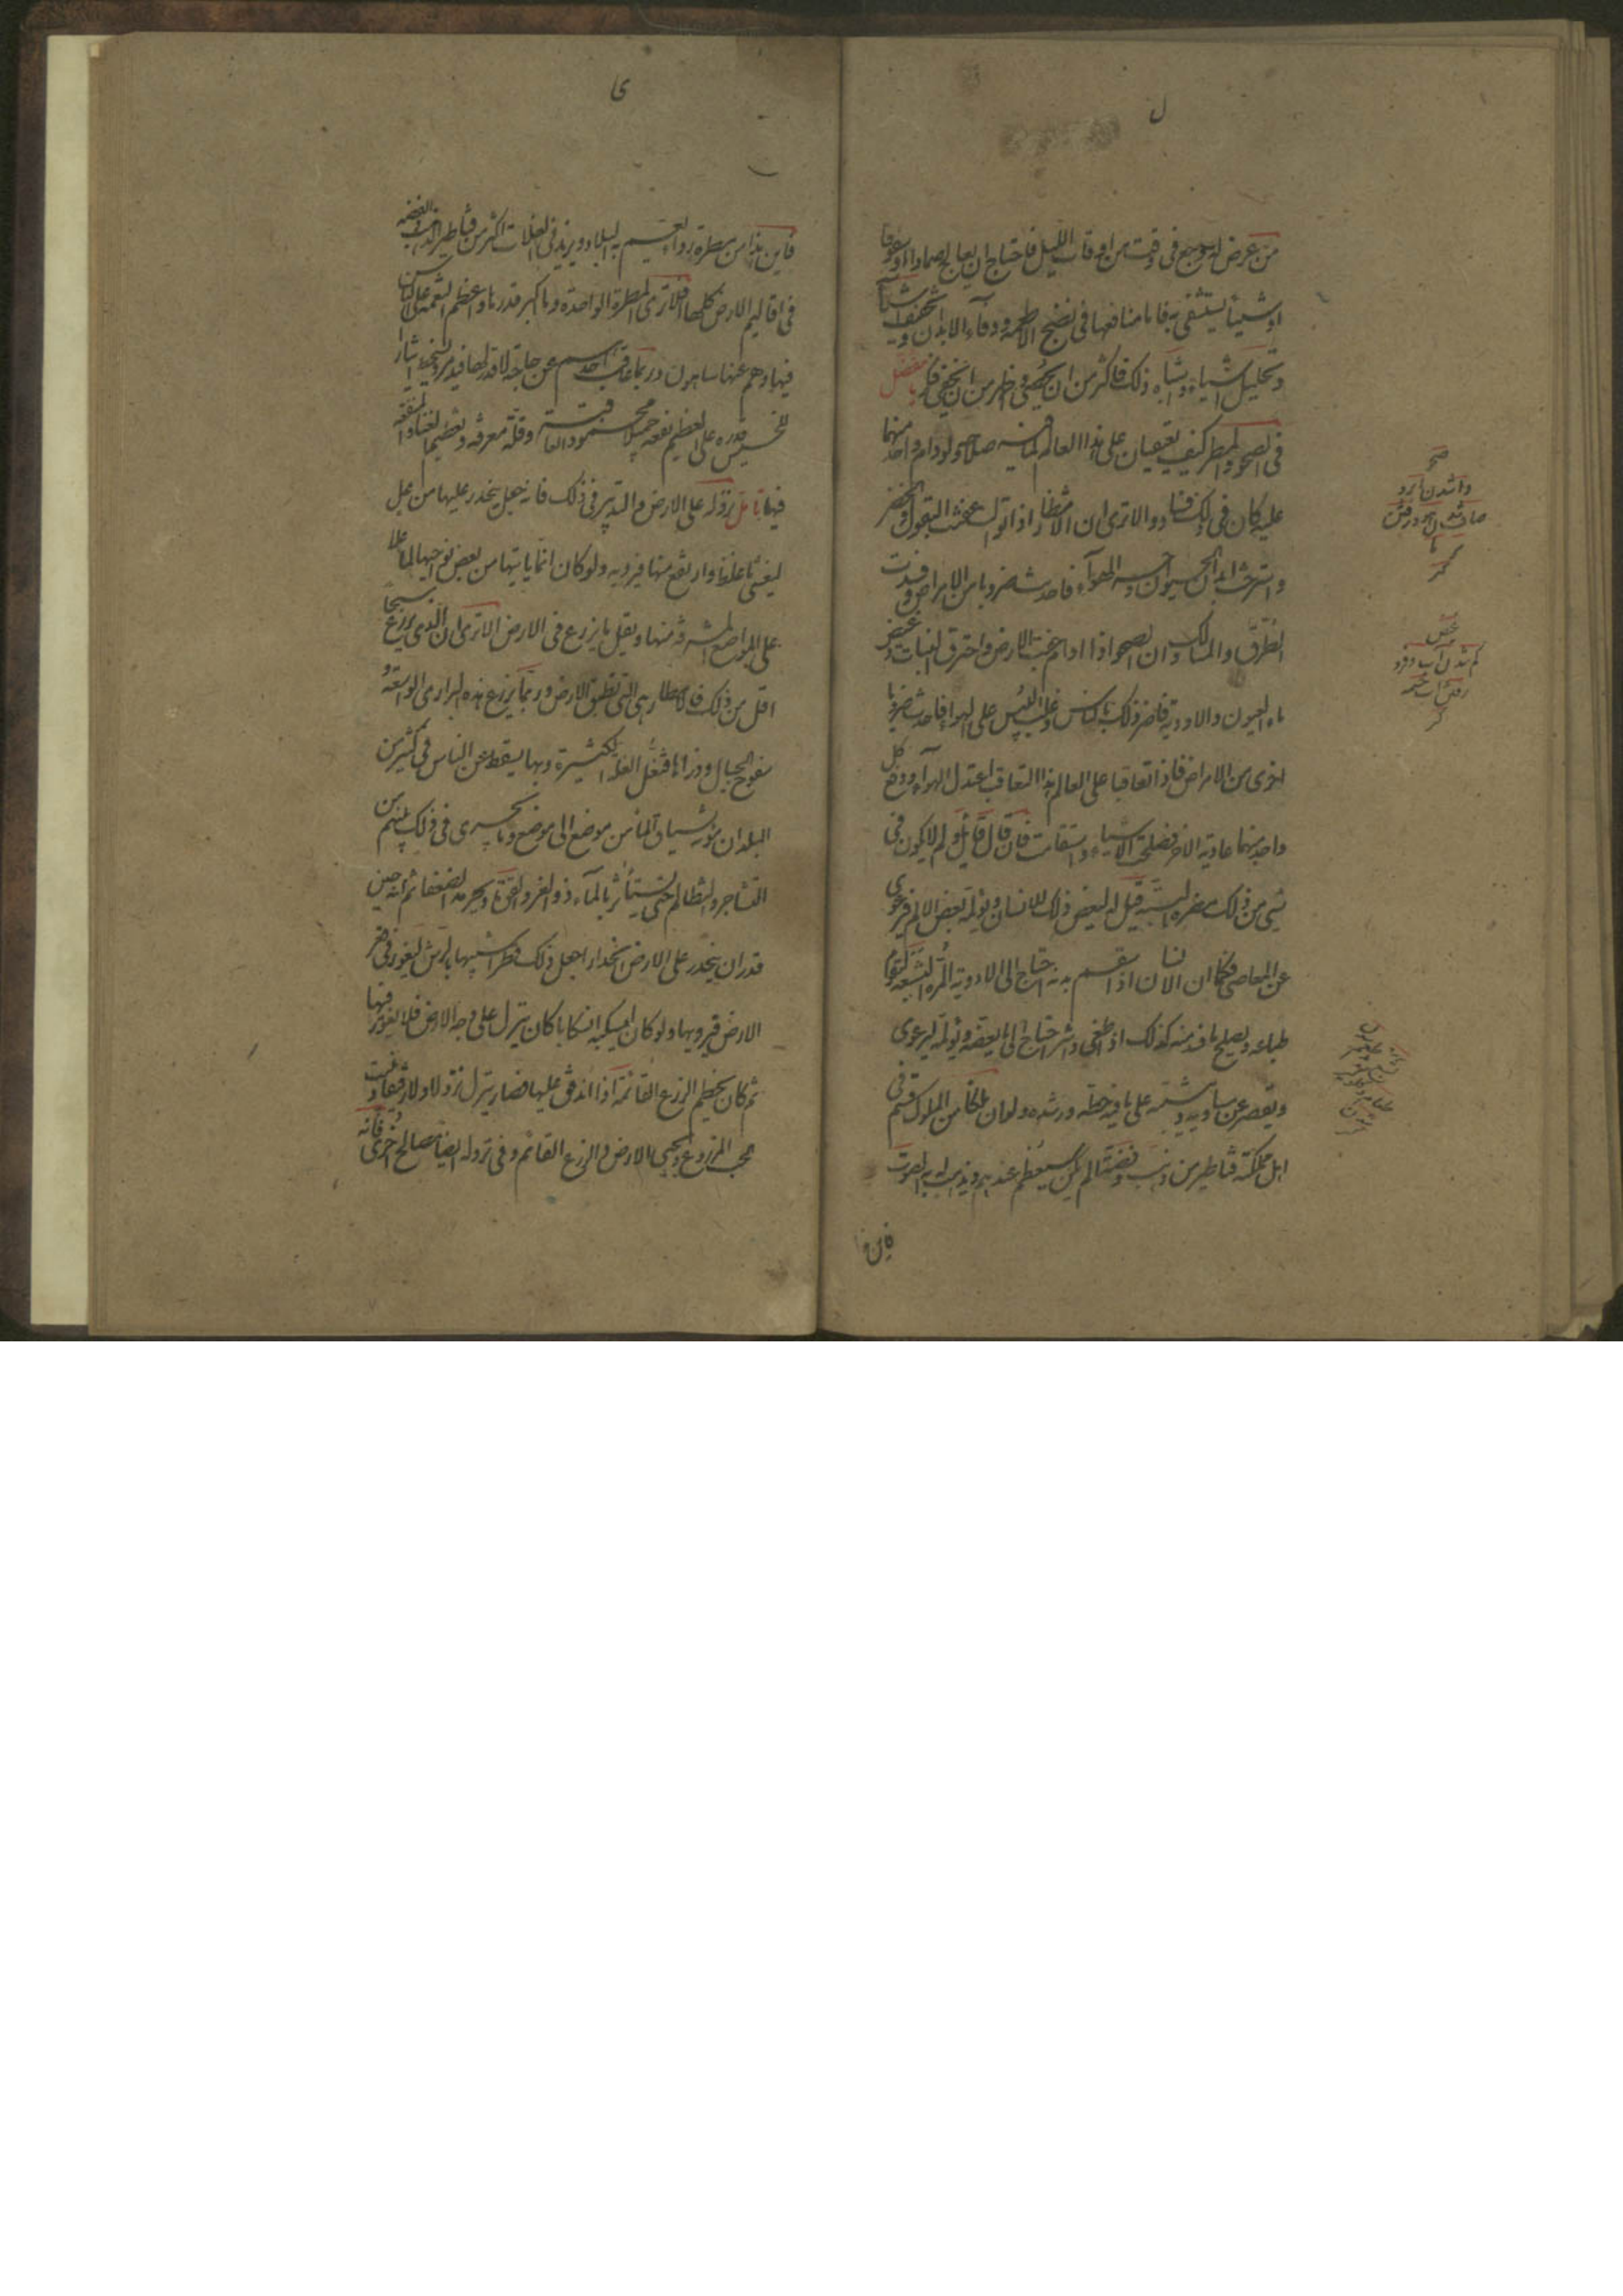 ل
من عرض له وجع فی وقت من اوقات اللیل فاحتاج ان یعالج ضمادا او سفوفا
او شیئا یستشفی به فاما منافعها فی نضج الاطعمه ودفاء الابدان وتجفیف اشیاء
وتحلیل اشیاء واشباه ذلک فاکثر من ان یحصی واظهر من ان یخفی فکر یا مفضل
فی الصحو والمطر کیف یعتقبان علی هذا العالم لما فیه صلاحه ولو دام واحد منهما
علیه کان فی ذلک فساده الا تری ان الامطار اذا توالت عفنت البقول والخضر
واسترخت ابدان الحیوان وخصر الهواء فاحدث ضروبا من الامراض وفسدت
الطرق والمسالک وان الصحو اذا دام جفت الارض واحترق النبات وغیض
ماء العیون والاودیه فاضر ذلک بالناس وغلب الیبس علی الهواء فاحدث ضروبا
اخری من الامراض فاذا تعاقبا علی العالم هذا التعاقب اعتدل الهواء ودفع کل
واحد منهما عادیه الاخر فصلحت الاشیاء واستقامت فان قال قائل ولم لا یکون فی
شیء من ذلک مضره البته قیل له لیمض ذلک الانسان ویؤلمه بعض الالم فیرعوی
عن المعاصی فکما ان الانسان اذا سقم بدنه احتاج الی الادویه المره البشعه لتقوم
طباعه ویصلح ما فسد منه کذلک اذا طغی واشر احتاج الی ما یمضه ویؤلمه لیرعوی
ویقصر عن مساویه ویثبته علی ما فیه حظه ورشده ولو ان ملکا من الملوک قسم فی
اهل مملکته قناطیر من ذهب وفضه الم یکن سیعظم عندهم ویذهب له به الصوت
فاین هذا
صحو
وا شدن ابر و
غیض
کم شدن آب و فرو
رفتن آب چشمه
ی
فاین هذا من مطره رواء یعم به البلاد ویزید فی الغلات اکثر من قناطیر الذهب والفضه
فی اقالیم الارض کلها افلا تری المطره الواحده وما اکبر قدرها واعظم النعمه علی الناس
فیها وهم عنها ساهون وربما عاقت احدهم عن حاجه لا قدر لها فیذمر ویسخط ایثارا
للخسیس قدره علی العظیم نفعه جمیلا محمود العاقبه وقله معرفه لعظیم الغناء والمنفعه
فیها تامل نزوله علی الارض والتدبیر فی ذلک فانه جعل ینحدر علیها من عل
لیغشی ما غلظ وارتفع منها فیرویه ولو کان انما یاتیها من بعض نواحیها لما علا
علی المواضع المشرفه منها ویقل ما یزرع فی الارض الا تری ان الذی یزرع سیحا
اقل من ذلک فالامطار هی التی تطبق الارض وربما یزرع هذه البراری الواسعه و
سفوح الجبال وذراها فتغل الغله الکثیره وبها یسقط عن الناس فی کثیر من
البلدان مؤنه سیاق الماء من موضع الی موضع وما یجری فی ذلک بینهم من
التشاجر والتظالم حتی یستاثر بالماء ذو العز والقوه ویحرمه الضعفاء ثم انه حین
قدر ان ینحدر علی الارض انحدارا جعل ذلک قطرا شبیها بالرش لیغور فی قطر
الارض فیرویها ولو کان یسکبه انسکابا کان ینزل علی وجه الارض فلا یغور فیها
ثم کان یحطم الزرع القائمه اذا اندفق علیها فصار ینزل نزولا رقیقا فینبت
الحب المزروع ویحیی الارض والزرع القائم وفی نزوله ایضا مصالح اخری فانه